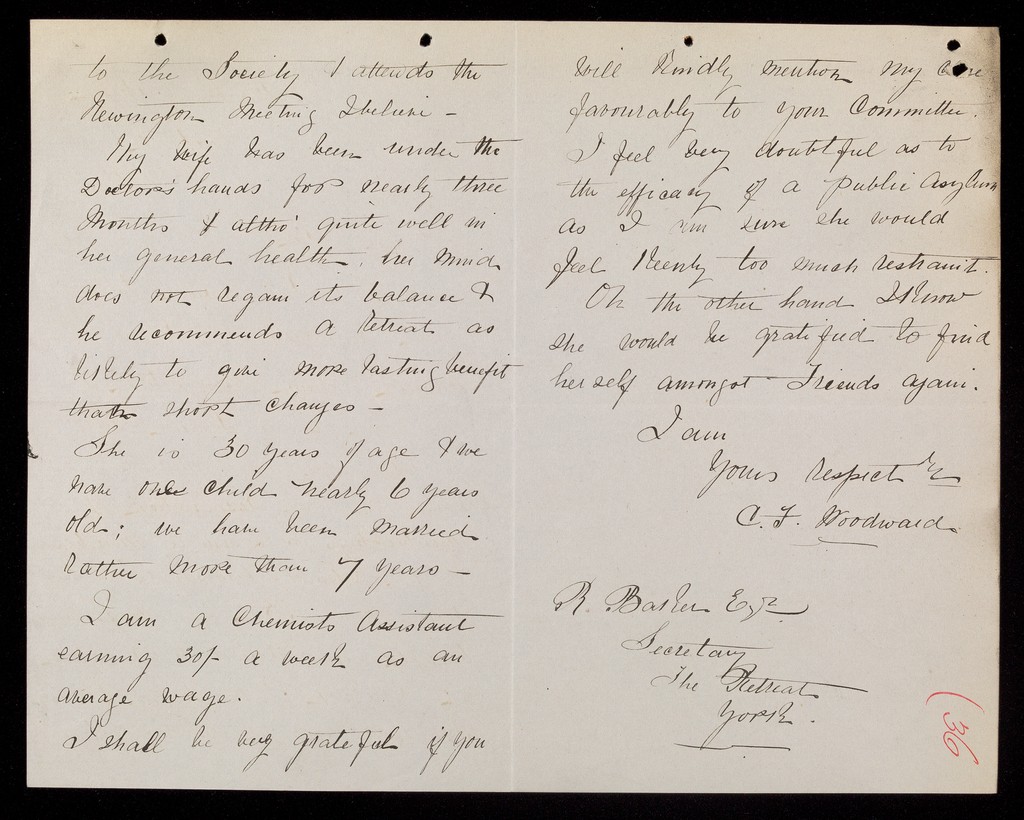 to the Society & attends the
Newington Meeting I believe –
My wife has been under the
Doctor's hands for nearly three
Months & altho' quite well in
her general health, her mind
does not regain its balance &
he recommends a Retreat as
likely to give more lasting benefit
than short changes –
She is 30 years of age & we
have one child nearly 6 years
old; we have been married
rather more than 7 years –
I am a Chemists Assistant
earning 30/- a week as an
average wage.
I shall be very grateful if you
will kindly mention my case
favourably to your Committee.
I feel very doubtful as to
the efficacy of a public asylum
as I am sure she would
feel keenly too much restraint.
On the other hand I know
she would be gratified to find
herself amongst Friends again.
I am
Yours respectly
C. F. Woodward
R. Baker Esqr
Secretary
The Retreat
York.
(36